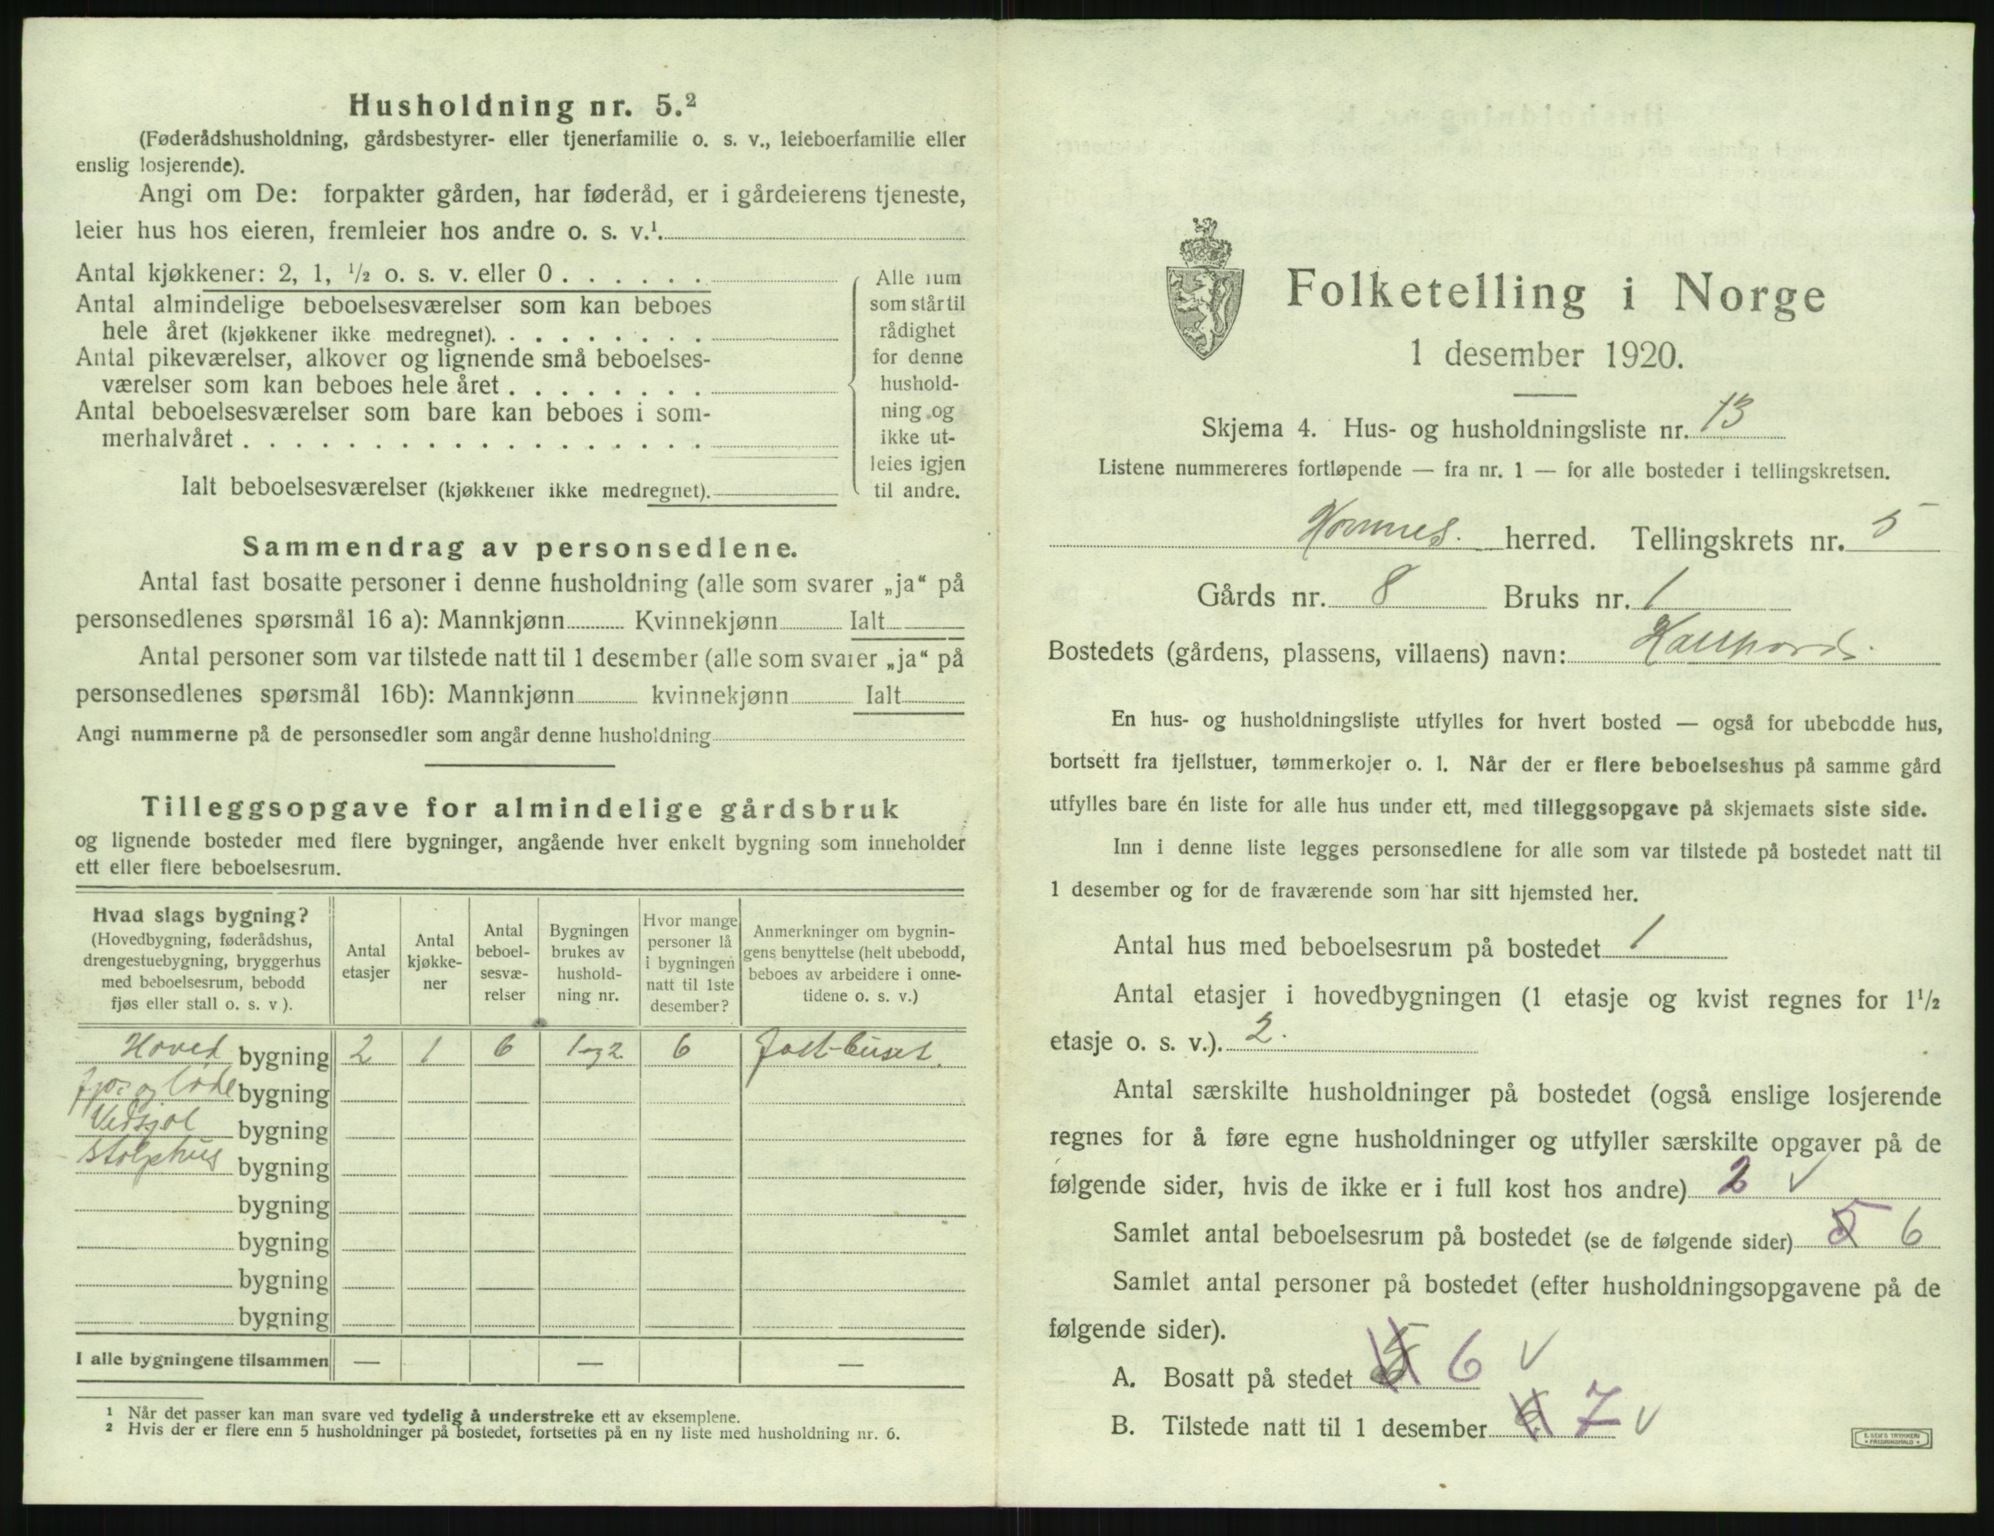 Husholdning nr. 5.²
(Føderådshusholdning, gårdsbestyrer- eller tjenerfamilie o. s. v., leieboerfamilie eller
enslig losjerende).
Angi om De: forpakter gården, har føderåd, er i gårdeierens tjeneste,
leier hus hos eieren, fremleier hos andre o. s. v.¹
Antal kjøkkener: 2, 1, ½ o. s. v. eller 0 . . . . . .
Antal almindelige beboelsesværelser som kan beboes
hele året (kjøkkener ikke medregnet). . . . . . . . .
Antal pikeværelser, alkover og lignende små beboelses-
værelser som kan beboes hele året . . . . . . . .
Antal beboelsesværelser som bare kan beboes i som-
merhalvåret . . . . . . . . . . . . . . . . . .
Ialt beboelsesværelser (kjøkkener ikke medregnet).
Alle rum
som står til
rådighet
for denne
hushold-
ning og
ikke ut-
leies igjen
til andre.
Sammendrag av personsedlene.
Antal fast bosatte personer i denne husholdning (alle som svarer „ja“ på
personsedlenes spørsmål 16 a): Mannkjønn Kvinnekjønn Ialt
Antal personer som var tilstede natt til 1 desember (alle som svarer „ja“ på
personsedlenes spørsmål 16b): Mannkjønn kvinnekjønn Ialt
Angi nummerne på de personsedler som angår denne husholdning
Tilleggsopgave for almindelige gårdsbruk
og lignende bosteder med flere bygninger, angående hver enkelt bygning som inneholder
ett eller flere beboelsesrum.
Hvad slags bygning?
(Hovedbygning, føderådshus,
drengestuebygning, bryggerhus
med beboelsesrum, bebodd
fjøs eller stall o. s. v ).
Antal
etasjer
Antal
kjøkke-
ner
Antal
beboel-
sesvæ-
relser
Bygningen
brukes av
hushold-
ning nr.
Hvor mange
personer lå
i bygningen
natt til 1ste
desember?
Anmerkninger om bygnin-
gens benyttelse (helt ubebodd,
beboes av arbeidere i onne-
tidene o. s. v.)
Hoved bygning 2 1 6 1 og 2 6
fjøs og løde bygning
Vedsjol bygning
stolpehus bygning
bygning
bygning
bygning
bygning
I alle bygningene tilsammen — — —
¹ Når det passer kan man svare ved tydelig å understreke ett av eksemplene.
² Hvis der er flere enn 5 husholdninger på bostedet, fortsettes på en ny liste med husholdning nr. 6.
Folketelling i Norge
1 desember 1920.
Skjema 4. Hus- og husholdningsliste nr. 13
Listene nummereres fortløpende — fra nr. 1 — for alle bosteder i tellingskretsen.
herred. Tellingskrets nr. 5
Gårds nr. 8 Bruks nr. 1
Bostedets (gårdens, plassens, villaens) navn:
En hus- og husholdningsliste utfylles for hvert bosted — også for ubebodde hus,
bortsett fra fjellstuer, tømmerkojer o. l. Når der er flere beboelseshus på samme gård
utfylles bare én liste for alle hus under ett, med tilleggsopgave på skjemaets siste side.
Inn i denne liste legges personsedlene for alle som var tilstede på bostedet natt til
1 desember og for de fraværende som har sitt hjemsted her.
Antal hus med beboelsesrum på bostedet 1
Antal etasjer i hovedbygningen (1 etasje og kvist regnes for 1½
etasje o. s. v.). 2.
Antal særskilte husholdninger på bostedet (også enslige losjerende
regnes for å føre egne husholdninger og utfyller særskilte opgaver på de
følgende sider, hvis de ikke er i full kost hos andre) 2 √
Samlet antal beboelsesrum på bostedet (se de følgende sider) 5 6
Samlet antal personer på bostedet (efter husholdningsopgavene på de
følgende sider).
A. Bosatt på stedet 6 √
B. Tilstede natt til 1 desember 7 √